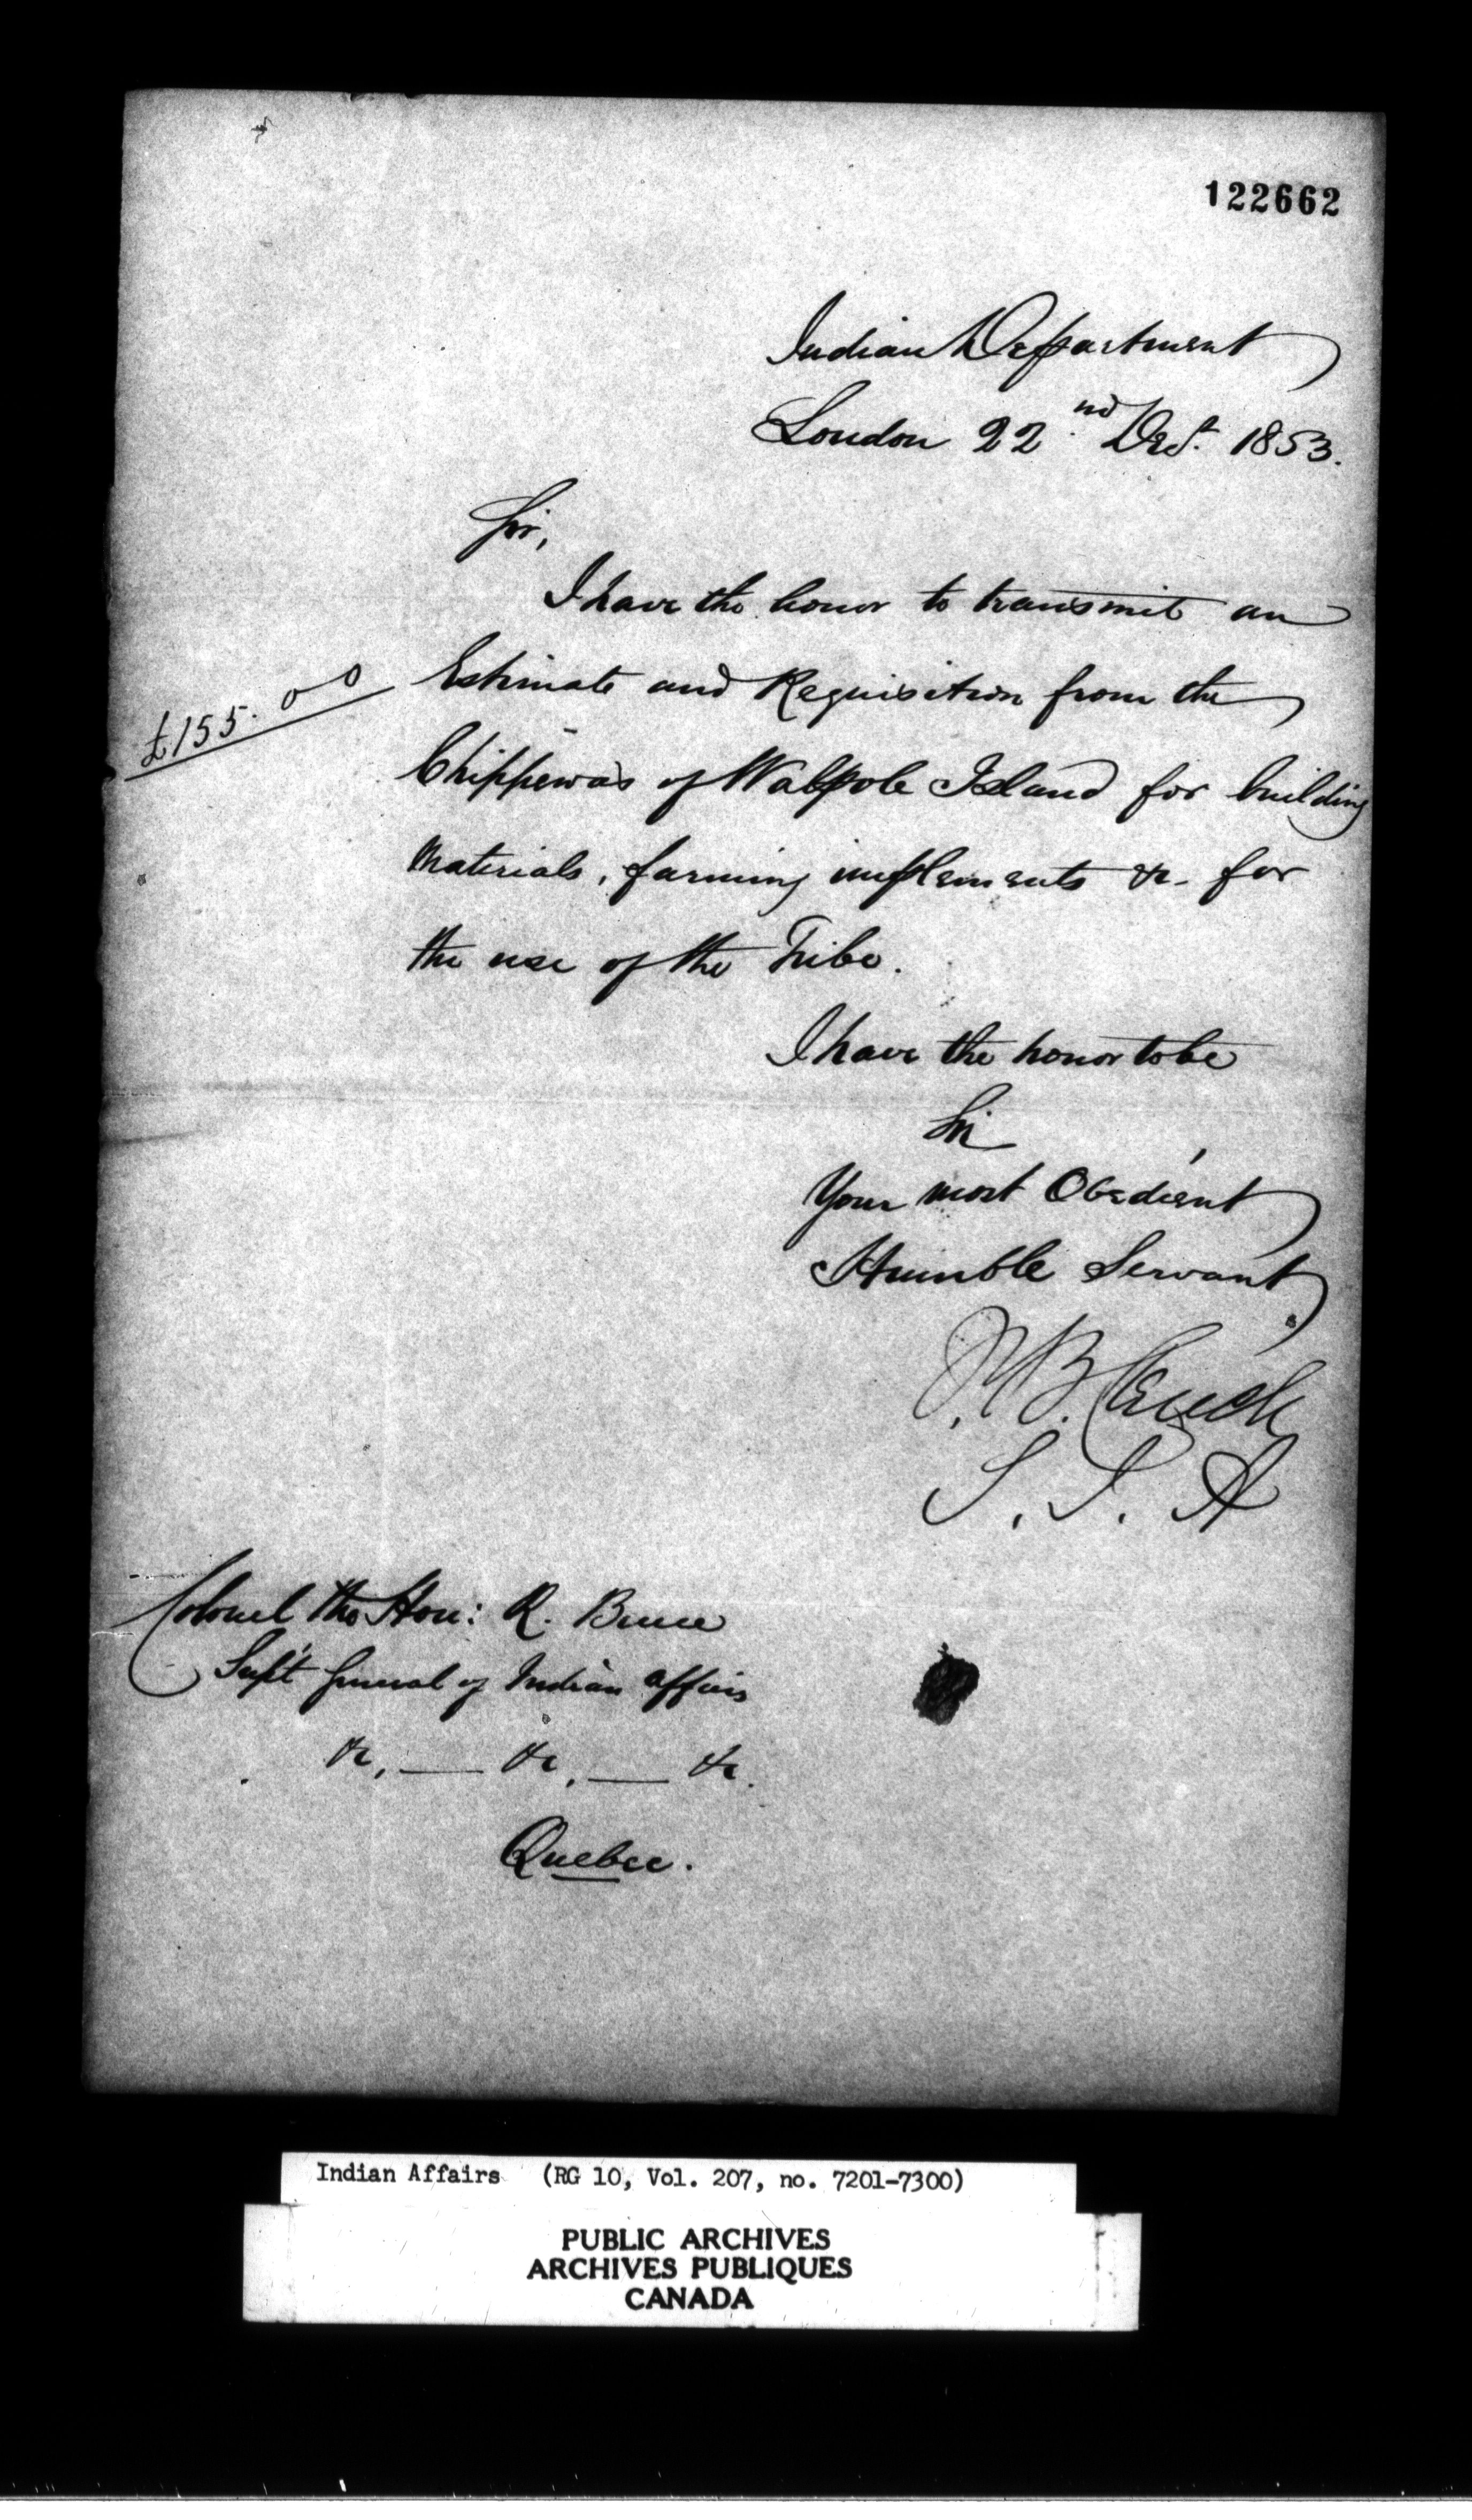 122662
Indian Department
London 22nd Decr. 1853.
Sir,
I have the honor to transmit an
£155. 0 0
Estimate and Requisition from the
Chippewas of Walpole Island for building
materials, farming implements &c. for
the use of the Tribe.
I have the honor to be
Sir
Your most Obedient
Humble Servant
J. B. Clench
S. I. A
Colonel the Hon: R. Bruce
Supt General of Indian Affairs
&c, — &c, — &c.
Quebec.
Indian Affairs (RG 10, Vol. 207, no. 7201-7300)
PUBLIC ARCHIVES
ARCHIVES PUBLIQUES
CANADA